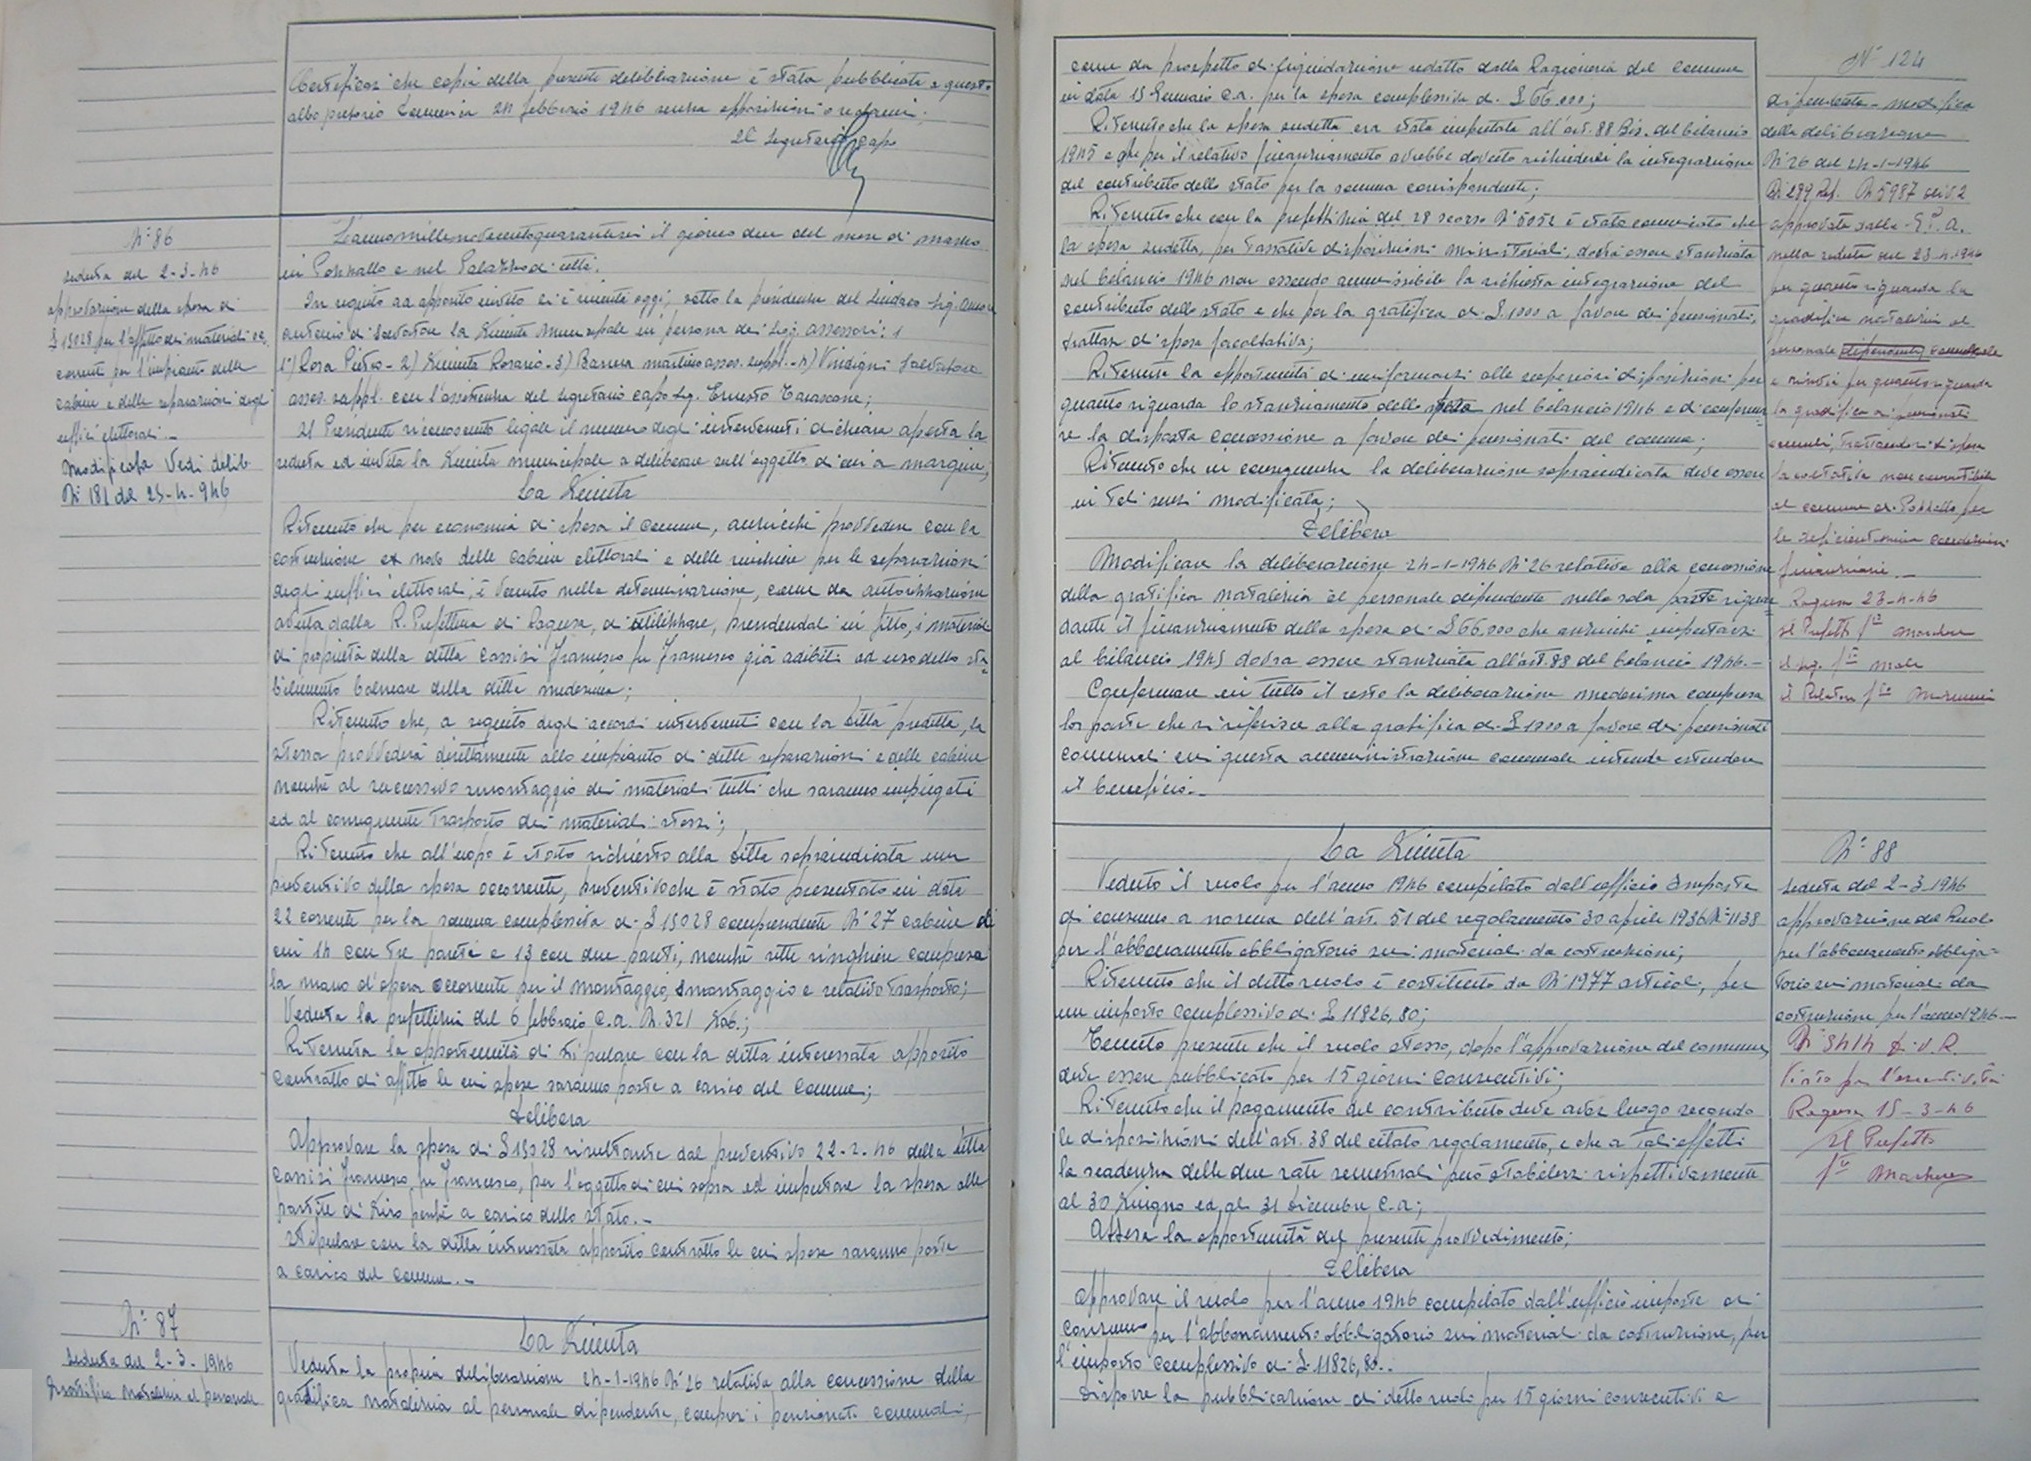 Certificasi che copia della presente deliberazione è stata pubblicata a questo
albo pretorio Comunale 24 febbraio 1946 senza opposizioni o reclami.
Il Segretario capo
N° 86
seduta del 2-3-46
approvazione della spesa di
£ 15028 per l'affitto dei materiali oc-
correnti per l'impianto delle
cabine e delle separazioni degli
uffici elettorali.-
Modificata Vedi delib.
N° 181 del 23-4-946
L'anno millenovecentoquarantasei il giorno due del mese di marzo
in Pozzallo e nel Palazzo di città.
In seguito ad apposito invito si è riunita oggi, sotto la presidenza del Sindaco Sig.
Antonio di Salvatore la Giunta Municipale in persona dei Sigg. assessori:
1°) Rosa Pietro - 2) Giunta Rosario - 3) Barrera Martino asses. suppl. - 4) Vindigni Salvatore
asses. suppl. con l'assistenza del Segretario capo Sig. Ernesto Tarascone;
Il Presidente riconosciuto legale il numero degli intervenuti dichiara aperta la
seduta ed invita la Giunta municipale a deliberare sull'oggetto di cui a margine,
La Giunta
Ritenuto che per economia di spesa il Comune, anzicchè provvedere con la
costruzione ex novo delle cabine elettorali e delle ringhiere per le separazioni
degli uffici elettorali, è venuto nella determinazione, come da autorizzazione
avuta dalla R. Prefettura di Ragusa, di utilizzare, prendendoli in fitto, i materiali
di proprietà della ditta Cassisi Francesco fu Francesco già adibiti ad uso dello sta-
bilimento balneare della ditta medesima;
Ritenuto che, a seguito degli accordi intervenuti con la ditta predetta, la
stessa provvederà direttamente allo impianto di dette separazioni e delle cabine
nonchè al successivo smontaggio dei materiali tutti che saranno impiegati
ed al conseguente trasporto dei materiali stessi;
Ritenuto che all'uopo è stato richiesto alla ditta sopraindicata un
preventivo della spesa occorrente, preventivo che è stato presentato in data
22 corrente per la somma complessiva di £ 15028 comprendente N° 27 cabine di
cui 14 con tre pareti e 13 con due pareti, nonchè sette ringhiere compresa
la mano d'opera occorrente per il montaggio, smontaggio e relativo trasporto;
Veduta la prefettizia del 6 febbraio c.a. N. 321 Gab.;
Ritenuta la opportunità di stipulare con la ditta interessata apposito
contratto di affitto le cui spese saranno poste a carico del Comune;
Delibera
Approvare la spesa di £ 15028 risultante dal preventivo 22-2-46 della ditta
Cassisi Francesco fu Francesco, per l'oggetto di cui sopra ed imputare la spesa alle
partite di Giro perchè a carico dello Stato.-
Stipulare con la ditta interessata apposito contratto le cui spese saranno poste
a carico del Comune.-
N° 87
Seduta del 2-3-1946
Gratifica natalizia al personale
La Giunta
Veduta la propria deliberazione 24-1-1946 N° 26 relativa alla concessione della
gratifica natalizia al personale dipendente, compresi i pensionati comunali,
come da prospetto di liquidazione redatto dalla Ragioneria del Comune
in data 15 Gennaio c.a. per la spesa complessiva di £ 66.000;
Ritenuto che la spesa sudetta era stata imputata all'art. 88 Bis. del bilancio
1945 e che per il relativo finanziamento avrebbe dovuto richiedersi la integrazione
del contributo dello stato per la somma corrispondente;
Ritenuto che con la prefettizia del 28 scorso N° 5052 è stato comunicato che
la spesa sudetta, per tassative disposizioni ministeriali, dovrà essere stanziata
nel bilancio 1946 non essendo ammissibile la richiesta integrazione del
contributo dello stato e che per la gratifica di £ 1000 a favore dei pensionati,
trattasi di spesa facoltativa;
Ritenuta la opportunità di uniformarsi alle superiori disposizioni per
quanto riguarda lo stanziamento della spesa nel bilancio 1946 e di conferma-
re la disposta concessione a favore dei pensionati del comune;
Ritenuto che in conseguenza la deliberazione sopraindicata deve essere
in tali sensi modificata;
Delibera
Modificare la deliberazione 24-1-1946 N° 26 relativa alla concessione
della gratifica natalizia al personale dipendente nella sola parte riguar-
dante il finanziamento della spesa di £ 66.000 che anzicchè imputarsi
al bilancio 1945 dovrà essere stanziata all'art. 88 del bilancio 1946.-
Confermare in tutto il resto la deliberazione medesima compresa
la parte che si riferisce alla gratifica di £ 1000 a favore dei pensionati
comunali cui questa amministrazione comunale intende estendere
il beneficio.-
N° 124
dipendente - modifica
della deliberazione
N° 26 del 24-1-1946
N° 5987 Div 2
approvata dalla G.P.A.
nella seduta del 23-4-1946
per quanto riguarda la
gratifica natalizia al
personale dipendente comunale
e rinvia per quanto riguarda
la gratifica ai pensionati
comunali, trattandosi di spesa
facoltativa non consentibile
al comune di Pozzallo per
le deficientissime condizioni
finanziarie.-
Ragusa 23-4-46
Il Prefetto f.to
il Seg. f.to
il Relatore f.to
La Giunta
Veduto il ruolo per l'anno 1946 compilato dall'ufficio Imposte
di consumo a norma dell'art. 51 del regolamento 30 aprile 1936 N° 1138
per l'abbonamento obbligatorio sui materiali da costruzioni;
Ritenuto che il detto ruolo è costituito da N° 1977 articoli, per
un importo complessivo di £ 11826,80;
Tenuto presente che il ruolo stesso, dopo l'approvazione del comune,
deve essere pubblicato per 15 giorni consecutivi;
Ritenuto che il pagamento del contributo deve aver luogo secondo
le disposizioni dell'art. 38 del citato regolamento, e che a tali effetti
la scadenza delle due rate semestrali può stabilirsi rispettivamente
al 30 Giugno ed al 31 Dicembre c.a;
Attesa la opportunità del presente provvedimento;
Delibera
Approvare il ruolo per l'anno 1946 compilato dall'ufficio imposte di
consumo per l'abbonamento obbligatorio sui materiali da costruzione, per
l'importo complessivo di £ 11826,80.
Disporre la pubblicazione di detto ruolo per 15 giorni consecutivi e
N° 88
seduta del 2-3-1946
approvazione del Ruolo
per l'abbonamento obbliga-
torio sui materiali da
costruzione per l'anno 1946-
N° 5414 D.V.R.
Visto per l'esecutività
Ragusa 15-3-46
Il Prefetto
f.to